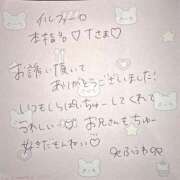 イルフィーロ
本指名♡Tさま♡
お誘い頂いて
ありがとうございました!
いつもしらばしちゅーしてくれて
うれしい…♡お兄さんもちゅー
好きだもんねぃ♡
ふうわ